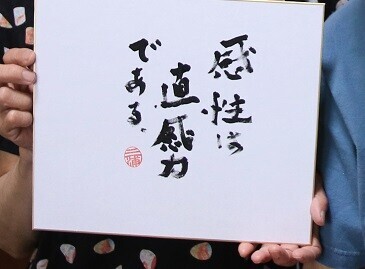 感性は
直感力
である、